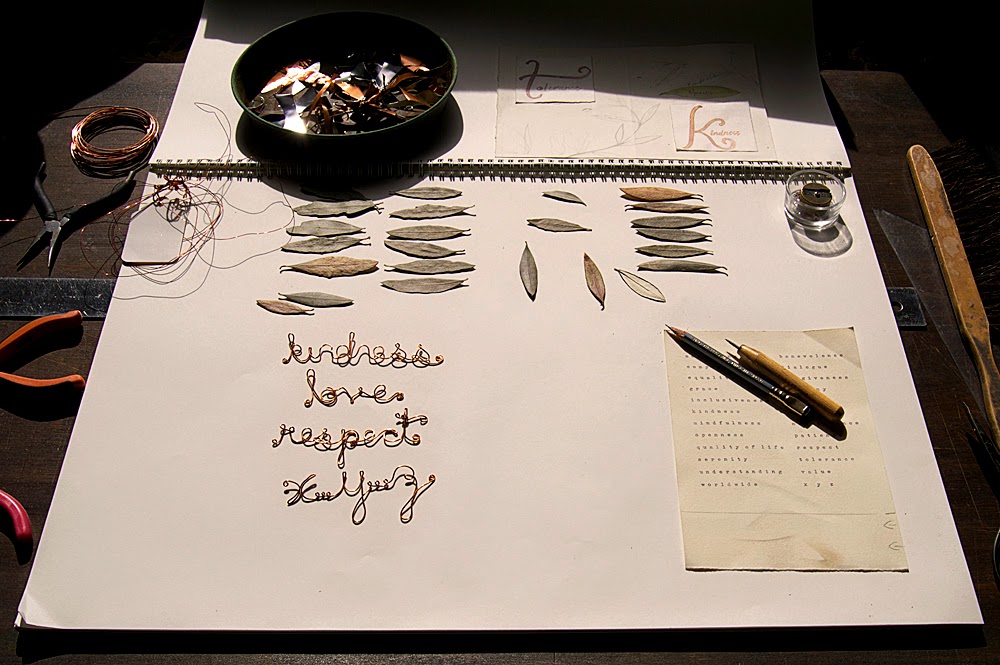 tolerance
Kindness
kindness
love
respect
x y z
benevolence
dialogue
equality
grace
inclusiveness
kindness
mindfulness
openness
quality of life respect
serenity tolerance
understanding value
worldwide x y z